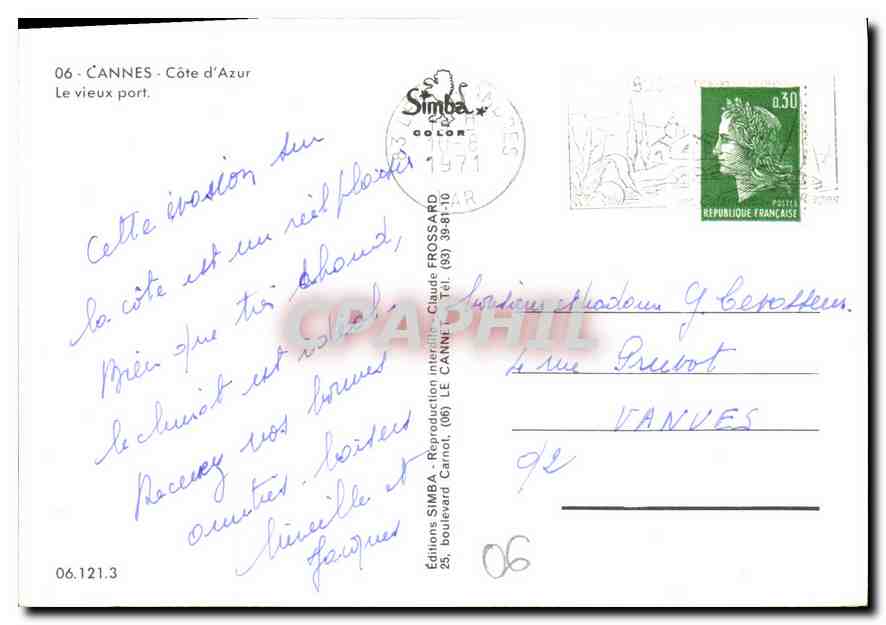 06 - CANNES - Côte d'Azur
Le vieux port.
Simba
COLOR
1971
VAR
0,30
POSTES
REPUBLIQUE FRANÇAISE
Cette évasion sur
la côte est un réel plaisir.
Bien que très chaud,
le climat est idéal.
Recevez nos bonnes
amitiés. baisers
Mireille et
Jacques
Éditions SIMBA - Reproduction interdite - Claude FROSSARD
25, boulevard Carnot, (06) LE CANNET. Tél. (93) 39-81-10
CPAPHIL
Monsieur Madame G.
4 rue Pruvot
VANVES
92
06
06.121.3